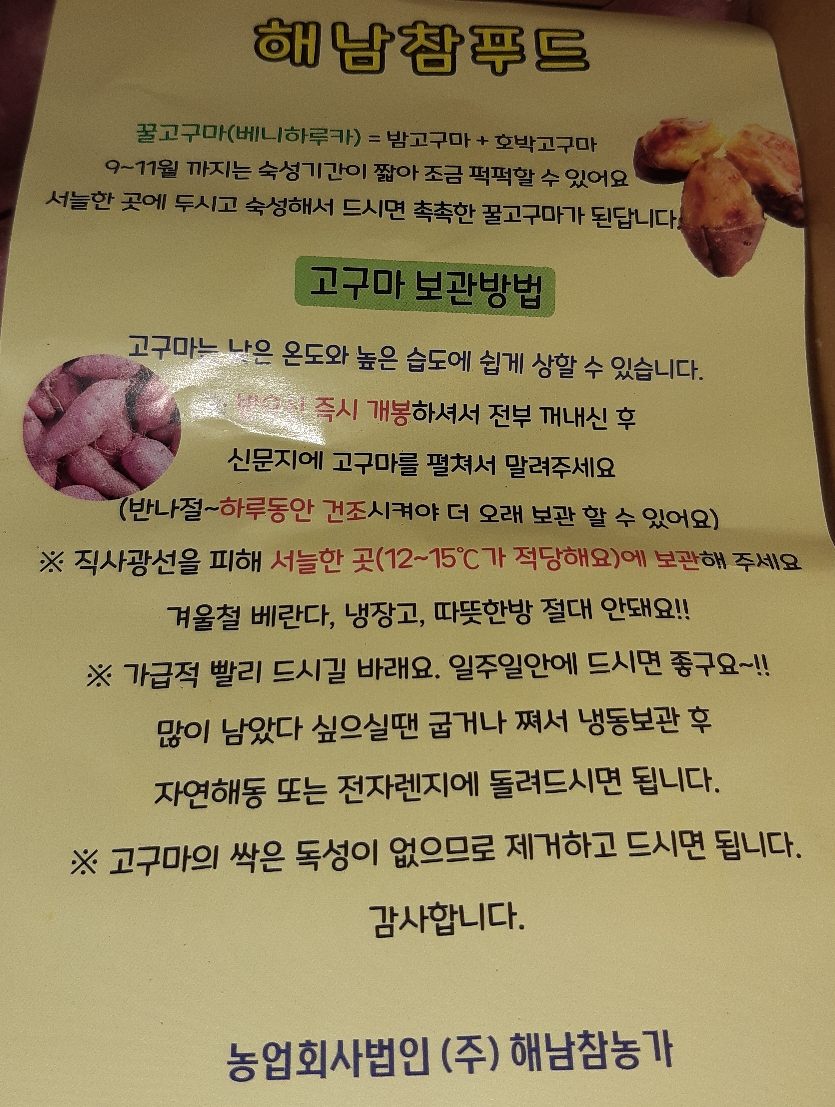 해남참푸드
꿀고구마(베니하루카) = 밤고구마 + 호박고구마
9~11월 까지는 숙성기간이 짧아 조금 퍽퍽할 수 있어요
서늘한 곳에 두시고 숙성해서 드시면 촉촉한 꿀고구마가 된답니다.
고구마 보관방법
고구마는 낮은 온도와 높은 습도에 쉽게 상할 수 있습니다.
즉시 개봉하셔서 전부 꺼내신 후
신문지에 고구마를 펼쳐서 말려주세요
(반나절~하루동안 건조시켜야 더 오래 보관 할 수 있어요)
※ 직사광선을 피해 서늘한 곳(12~15℃가 적당해요)에 보관해 주세요
겨울철 베란다, 냉장고, 따뜻한방 절대 안돼요!!
※ 가급적 빨리 드시길 바래요. 일주일안에 드시면 좋구요~!!
많이 남았다 싶으실땐 굽거나 쪄서 냉동보관 후
자연해동 또는 전자렌지에 돌려드시면 됩니다.
※ 고구마의 싹은 독성이 없으므로 제거하고 드시면 됩니다.
감사합니다.
농업회사법인 (주) 해남참농가